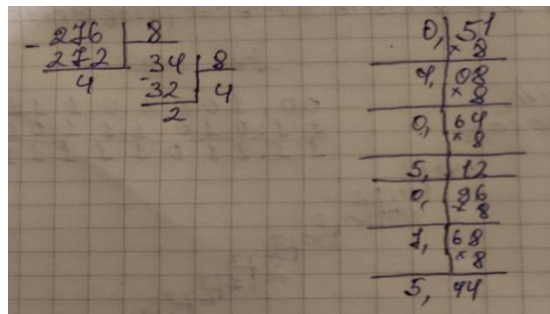 - 276 | 8
272 | 34 | 8
4 - 32 | 4
2
0, | 51
× 8
4, | 08
× 8
0, | 64
× 8
5, | 12
0, | 96
× 8
7, | 68
× 8
5, | 44